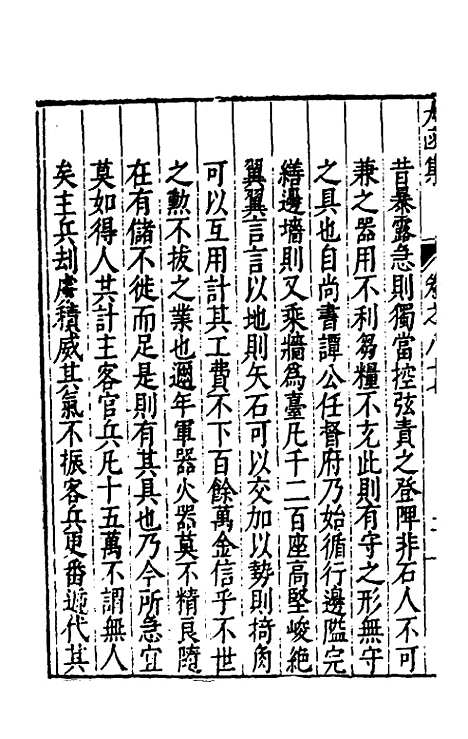 太函集 卷之八十七
昔暴露急則獨當控弦責之登陴非石人不可
兼之器用不利芻糧不充此則有守之形無守
之具也自尚書譚公任督府乃始循行邊隘完
繕邊墻則又乘牆為臺凢千二百座高堅峻絶
翼翼言言以地則矢石可以交加以勢則掎角
可以互用計其工費不下百餘萬金信乎不世
之勲不拔之業也邇年軍器火器莫不精良隨
在有儲不徙而足是則有其具也乃今所急宜
莫如得人其計主客官兵凢十五萬不謂無人
矣主兵刦虜積威其氣不振客兵更番遞代其